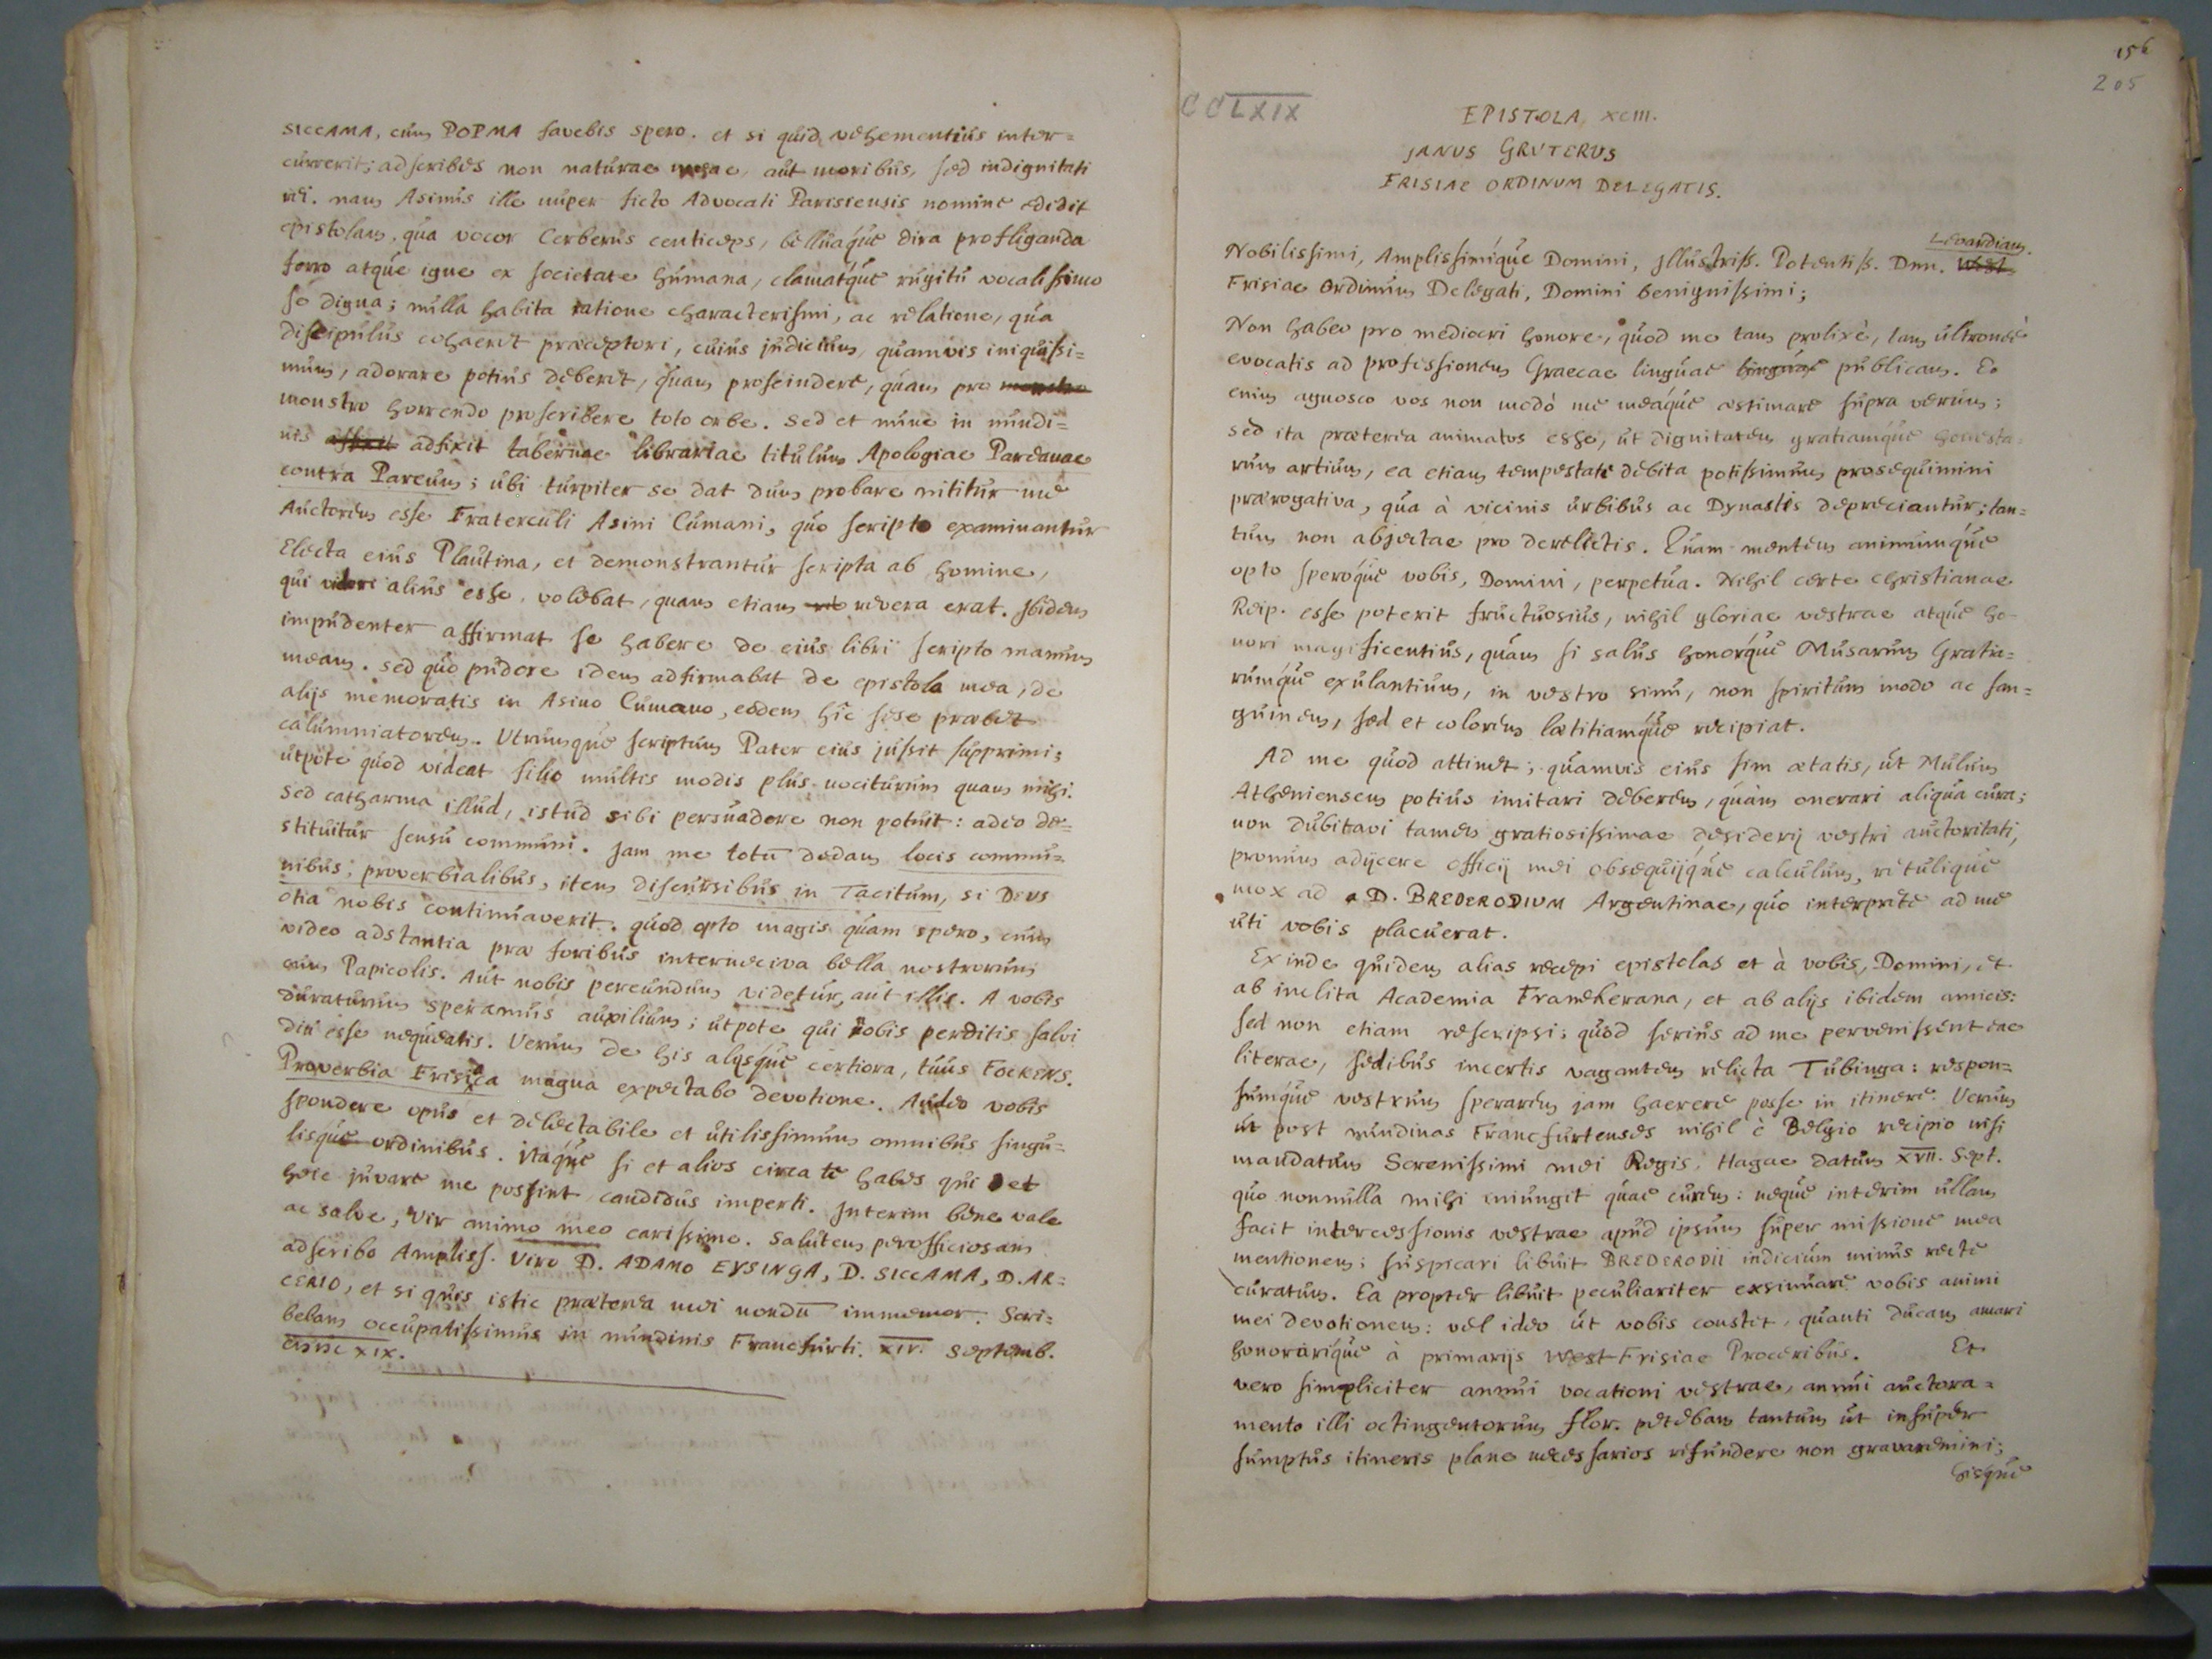 SICCAMA, cum POPMA favebis spero. et si quid vehementius inter=
currerit; adscribes non naturae meae, aut moribus, sed indignitati
rei. nam Asinus ille nuper ficto Advocati Parisiensis nomine edidit
epistolam, qua vocor Cerberus centiceps, belluaque dira profliganda
ferro atque igne ex societate humana, clamatque rugitu vocalissimo
se digna; nulla habita ratione characterismi, ac relatione, qua
discipulus cohaeret praeceptori, cuius judicium, quamvis iniquissi=
mum, adorare potius deberet, quam proscindere, quam pro monstro
monstro horrendo proscribere toto orbe. sed et nunc in nundi=
nis affixit adfixit tabernae librariae titulum Apologiae Pareanae
contra Pareum; ubi turpiter se dat dum probare nititur me
Auctorem esse Fraterculi Asini Cumani, quo scripto examinantur
Electa eius Plautina, et demonstrantur scripta ab homine,
qui videri alius esse volebat, quam etiam re revera erat. Ibidem
impudenter affirmat se habere de eius libri scripto manum
meam. sed quo pudore idem adfirmabat de epistola mea, de
alijs memoratis in Asino Cumano, eodem hîc sese praebet
calumniatorem. Utrumque scriptum Pater eius jussit supprimi;
utpote quod videat filio multis modis plus nociturum quam mihi.
sed catharma illud, istud sibi persuadere non potuit: adeo de=
stituitur sensu communi. Jam me totū dedam locis commu=
nibus; proverbialibus, item discursibus in Tacitum, si DEUS
otia nobis continuaverit. quod opto magis quam spero, cum
video adstantia prae foribus interneciva bella nostrorum
cum Papicolis. Aut nobis pereundum videtur, aut illis. A vobis
duraturum speramus auxilium; utpote qui nobis perditis salvi
diu esse nequeatis. Verum de his alijsque certiora, tuus FOCKENS.
Proverbia Frisica magna expectabo devotione. Audeo vobis
spondere opus et delectabile et utilissimum omnibus singu=
lisque ordinibus. Itaque si et alios circa te habes qui et
heic juvare me possint candidus imperti. Interim bene vale
ac salve, Vir animo meo carissime. Salutem perofficiosam
adscribo Ampliss. Viro D. ADAMO EYSINGA, D. SICCAMA, D. AR=
CERIO, et si quis istic praeterea mei nondū immemor. Scri=
bebam occupatissimus in nundinis Francfurti. XIV. Septemb.
XIX.
156
205
CCLXIX
EPISTOLA XCIII.
JANUS GRUTERUS
FRISIAE ORDINUM DELEGATIS.
Leovardiam.
Nobilissimi, Amplissimique Domini, Illustriss. Potentiss. Dnn. West
Frisiae Ordinum Delegati, Domini benignissimi;
Non habeo pro mediocri honore, quod me tam prolixè, tam ultroneè
evocatis ad professionem Graecae linguae linguae publicam. Eo
enim agnosco vos non modò me meaque aestimare supra verum;
sed ita praeterea animatos esse, ut dignitatem gratiamque honesta=
rum artium, ea etiam tempestate debita potissimum prosequimini
praerogativa, qua à vicinis urbibus ac Dynastis depreciantur; tan=
tum non abjectae pro derelictis. Quam mentem animumque
opto speroque vobis, Domini, perpetua. Nihil certe Christianae
Reip. esse poterit fructuosius, nihil gloriae vestrae atque ho=
nori magificentius, quam si salus honorque Musarum Gratia=
rumque exulantium, in vestro sinu, non spiritum modo ac san=
guinem, sed et colorem laetitiamque recipiat.
Ad me quod attinet; quamvis eius sim aetatis, ut Mulum
Atheniensem potius imitari deberem, quàm onerari aliqua cura;
non dubitavi tamen gratiosissimae desiderij vestri auctoritati,
promum adijcere officij mei obsequijque calculum, retulique
mox ad D. BREDERODIUM Argentinae, quo interprete ad me
uti vobis placuerat.
Exinde quidem alias recepi epistolas et à vobis, Domini, et
ab inclita Academia Franekerana, et ab alijs ibidem amicis:
sed non etiam rescripsi; quod serius ad me pervenissent eae
literae, sedibus incertis vagantem relicta Tubinga: respon=
sumque vestrum sperarem jam haerere posse in itinere. Verum
ut post nundinas Francfurtenses nihil è Belgio recipio nisi
mandatum Serenissimi mei Regis, Hagae datum XVII. Sept.
quo nonnulla mihi iniungit quae curem: neque interim ullam
facit intercessionis vestrae apud ipsum super missione mea
mentionem; suspicari libuit BREDERODII indicium minus recte
curatum. Ea propter libuit peculiariter exsinuare vobis animi
mei devotionem: vel ideo ut vobis constet, quanti ducam amari
honorarique à primarijs West-Frisiae Proceribus. Et
vero simpliciter annui vocationi vestrae, annui auctora=
mento illi octingentorum flor. petebam tantum ut insuper
sumptus itineris plane necessarios refundere non gravaremini;
hisque